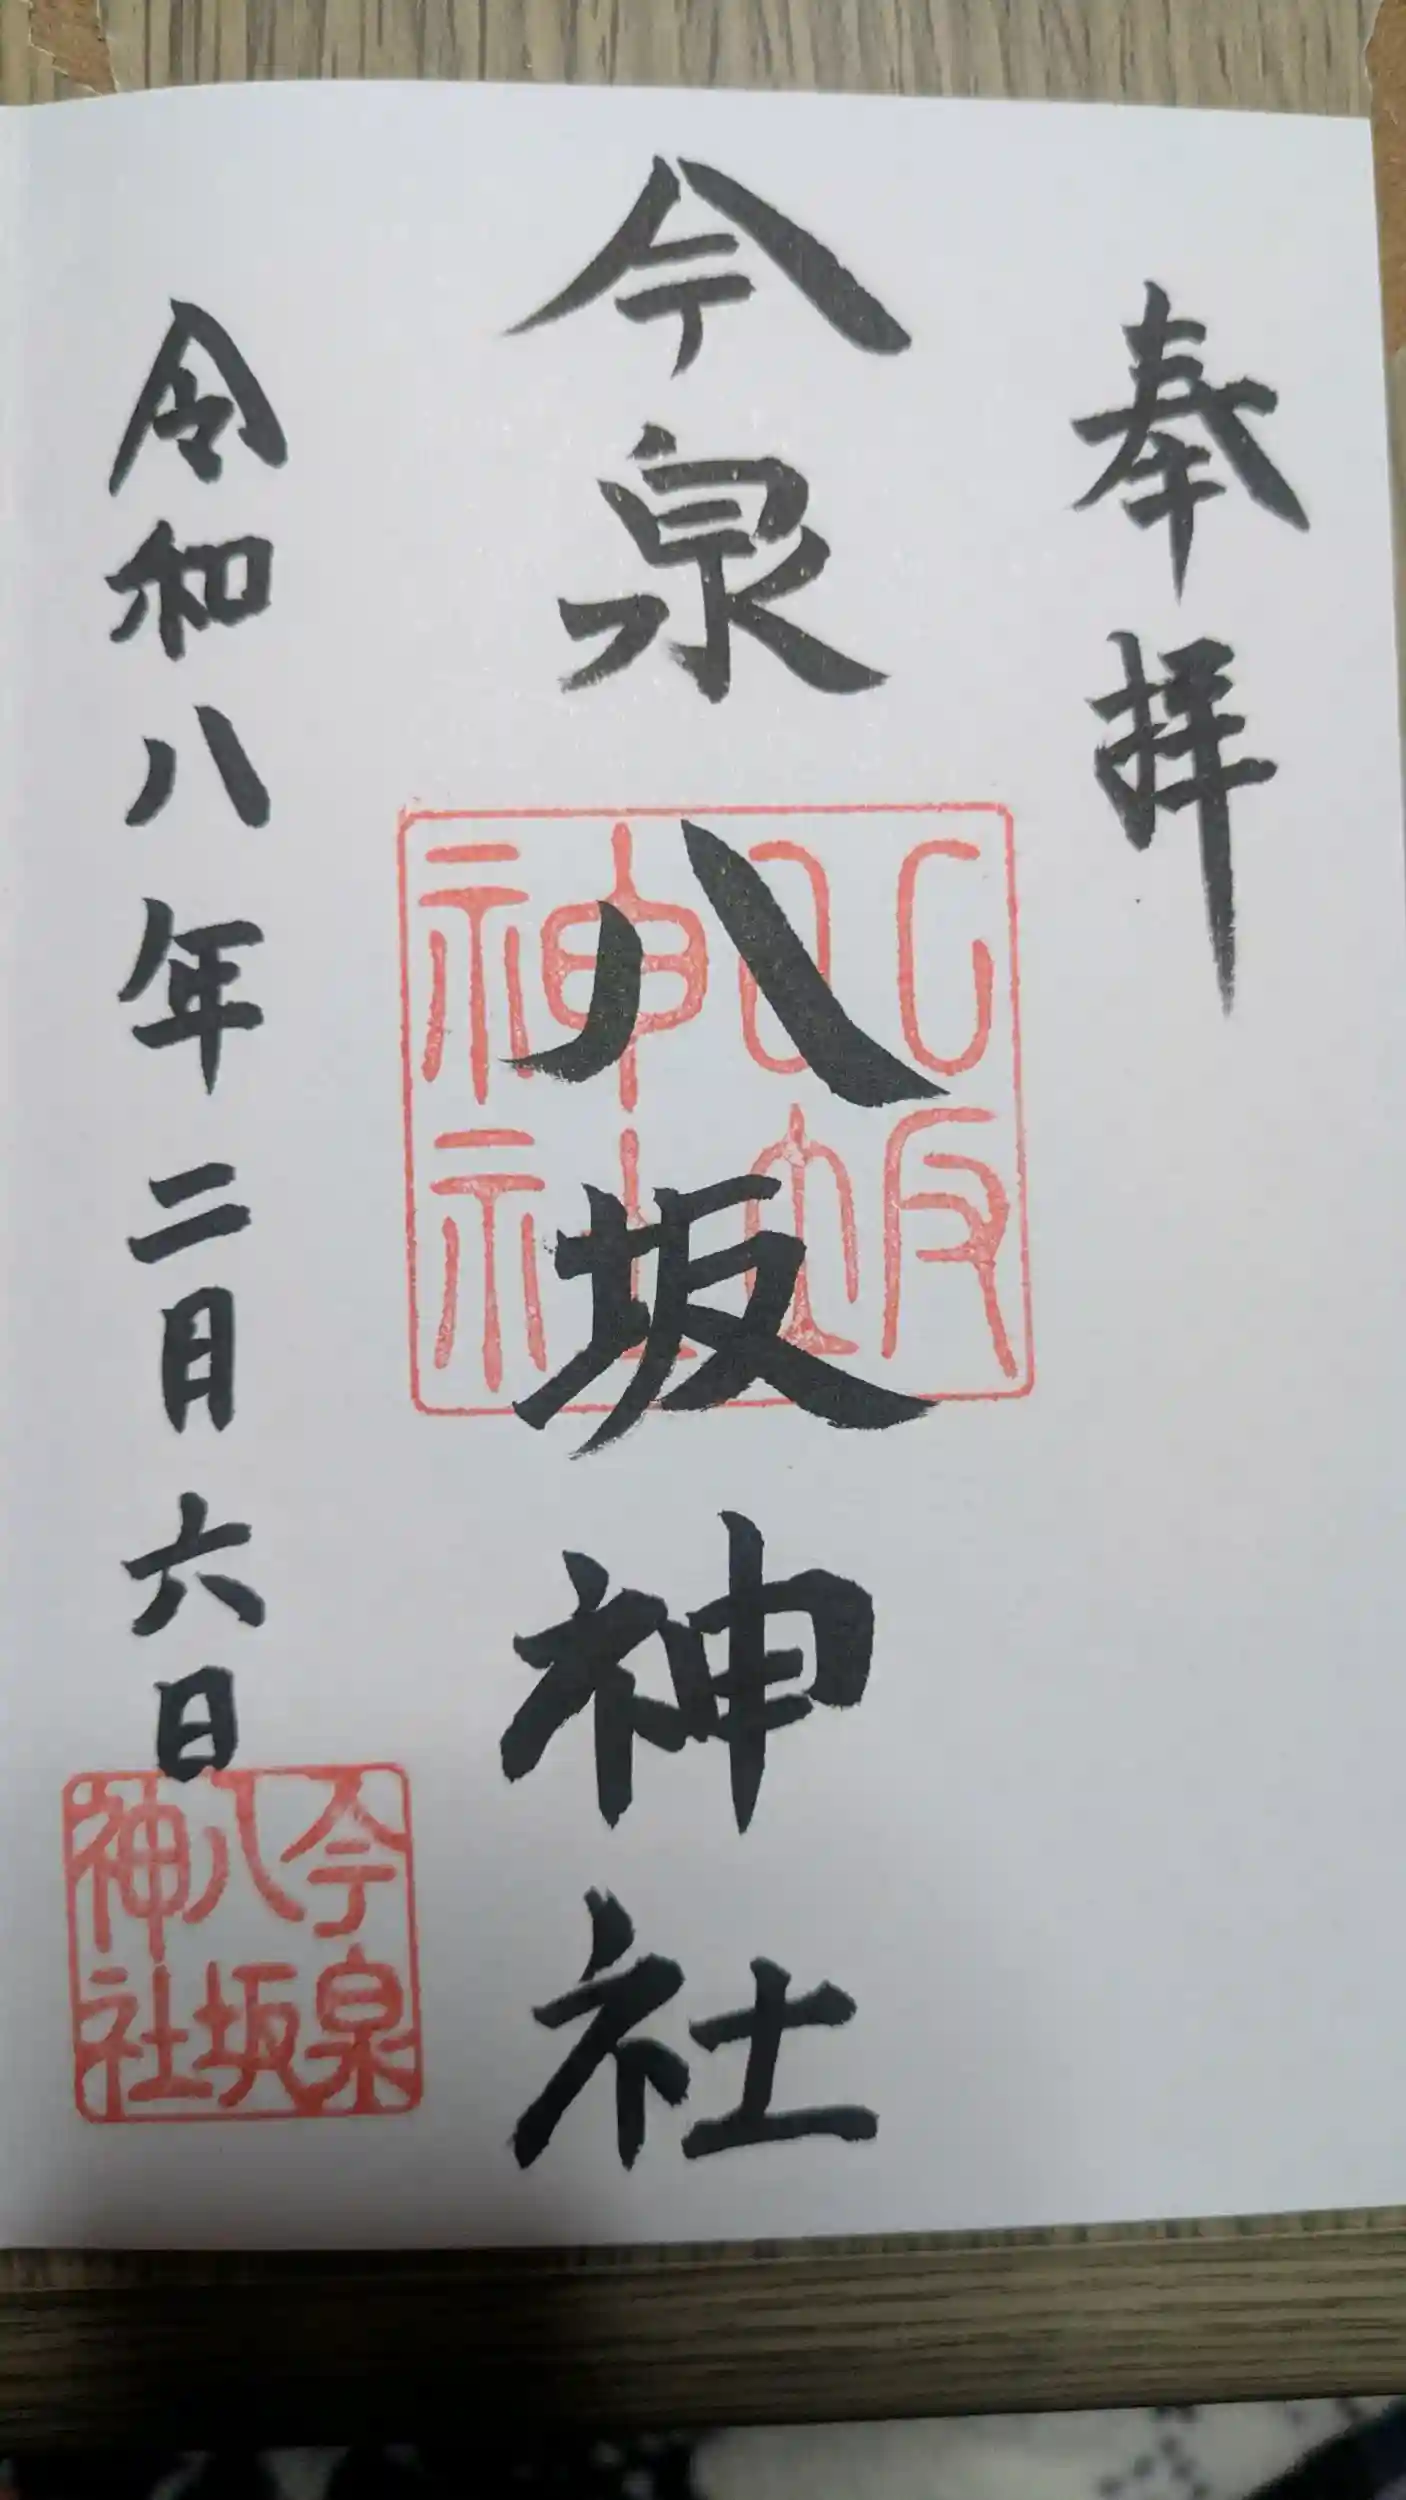 奉拝
今泉八坂神社
八坂
神社
令和八年二月六日
今泉
八坂
神社